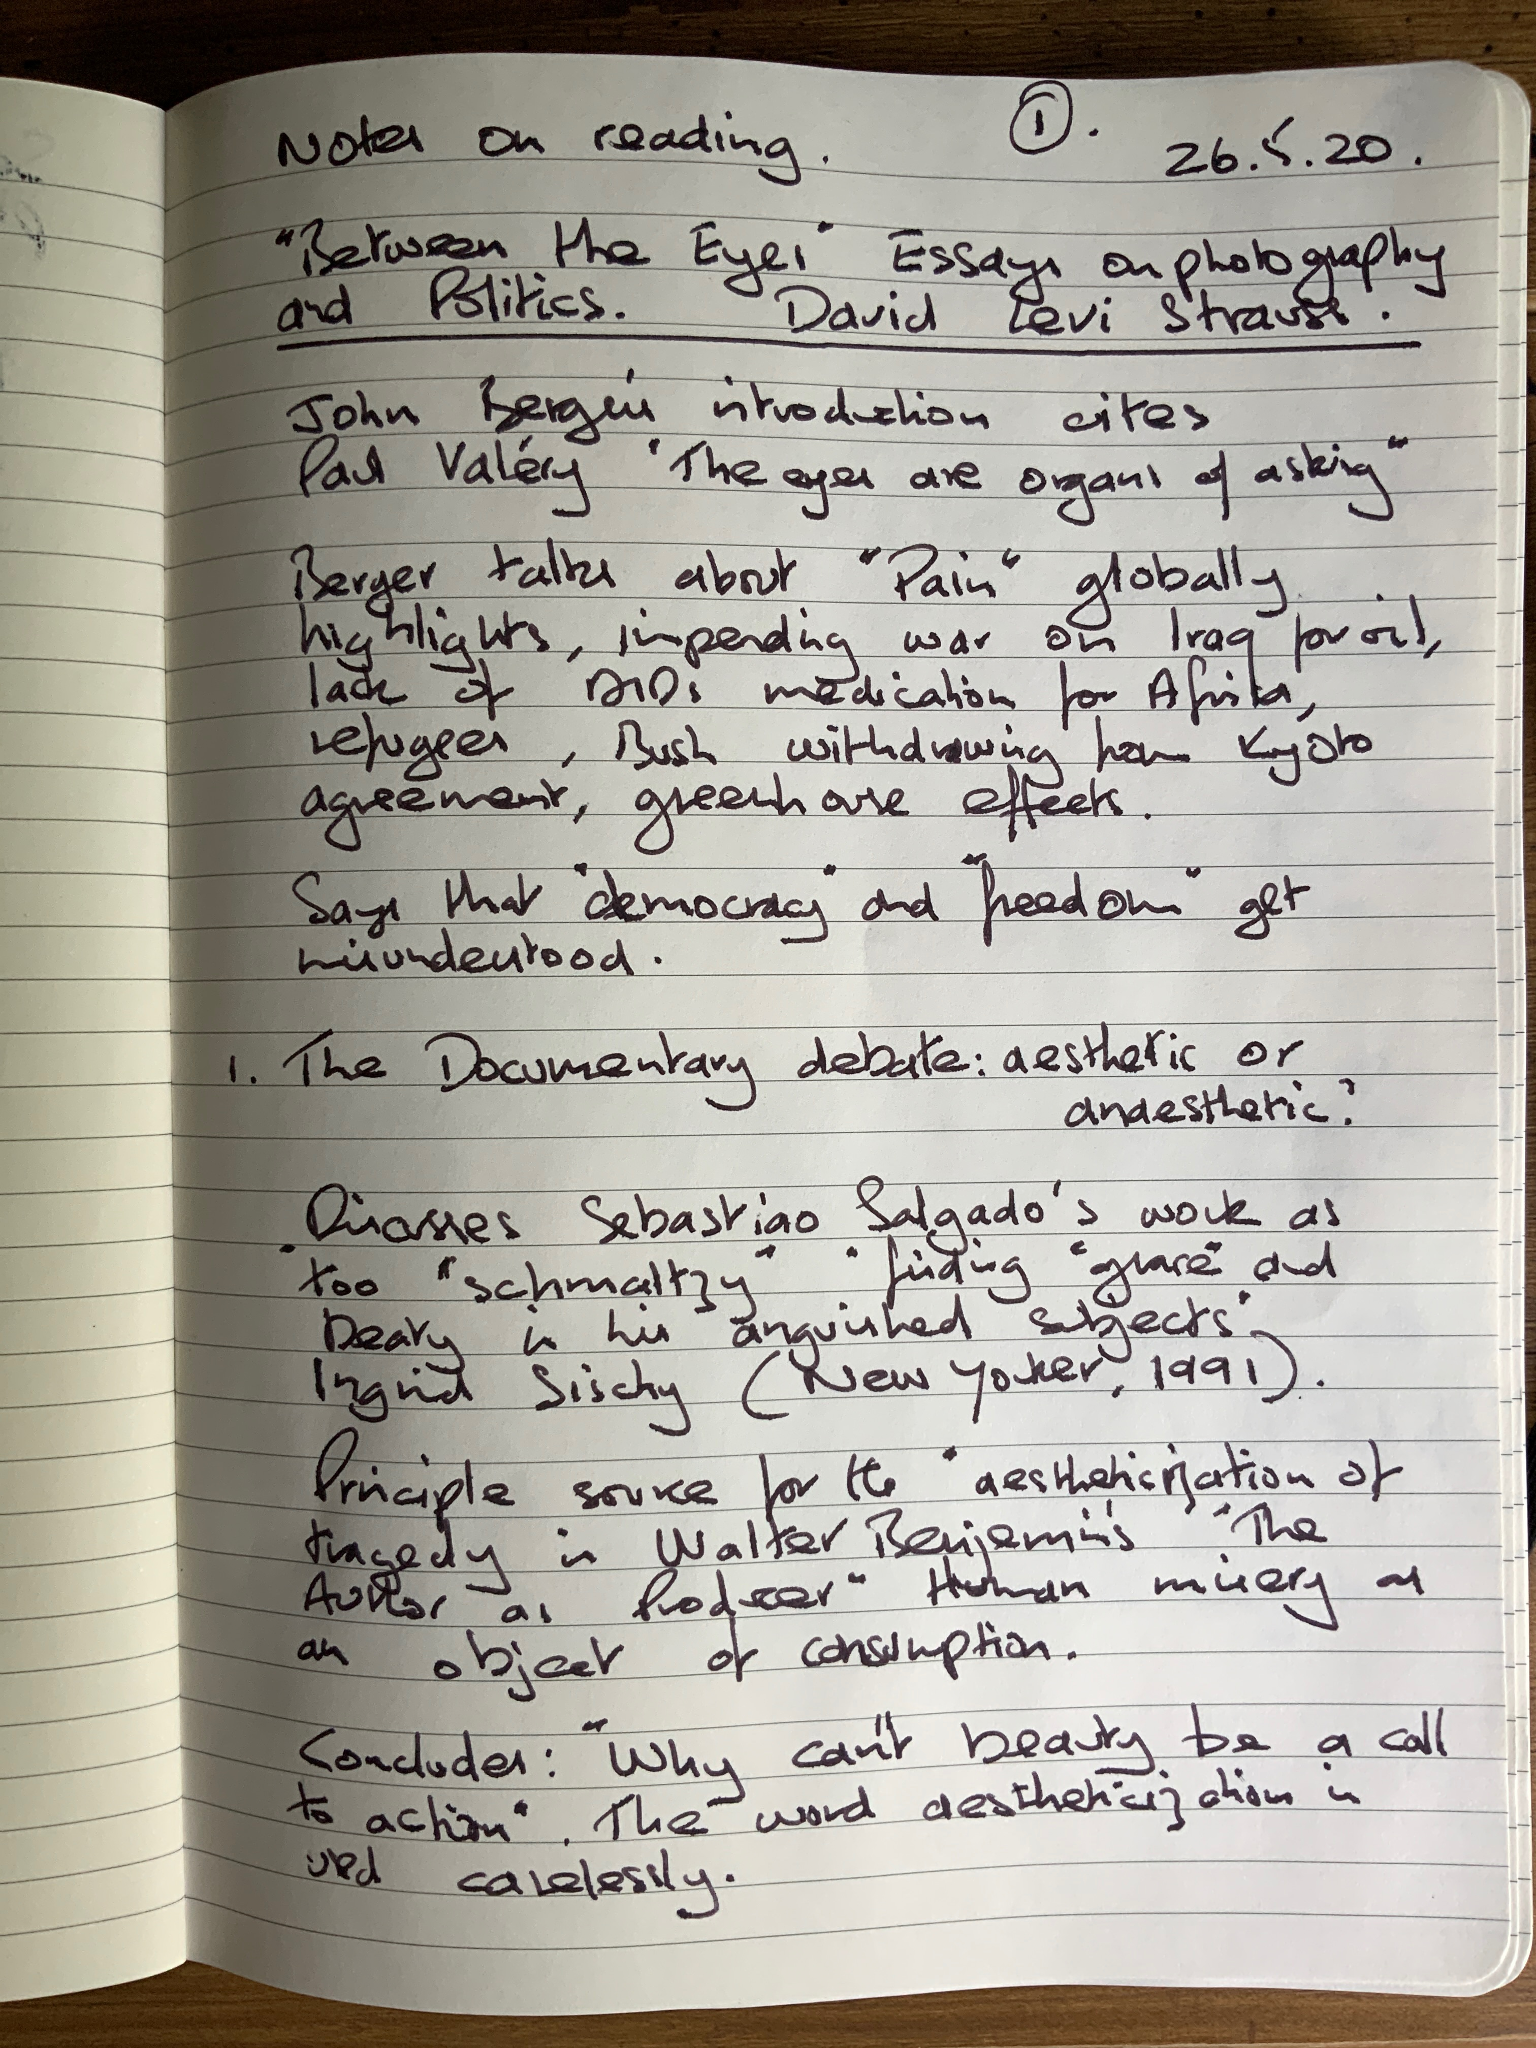 Notes on reading. 1. 26.5.20.
"Between the Eyes" Essays on photography
and Politics. David Levi Strauss.
John Berger's introduction cites
Paul Valéry "The eyes are organs of asking"
Berger talks about "Pain" globally
highlights, impending war on Iraq for oil,
lack of AIDs medication for Africa,
refugees, Bush withdrawing from Kyoto
agreement, greenhouse effects.
Says that "democracy" and "freedom" get
misunderstood.
1. The Documentary debate: aesthetic or
anaesthetic?
Discusses Sebastiao Salgado's work as
"too "schmaltzy" "finding "grace" and
Beauty in his anguished subjects"
Ingrid Sischy (New Yorker, 1991).
Principle source for the "aestheticization of
tragedy in Walter Benjamin's "The
Author as Producer" Human misery as
an object of consumption.
Concludes: "Why can't beauty be a call
to action". The word aestheticization is
used carelessly.